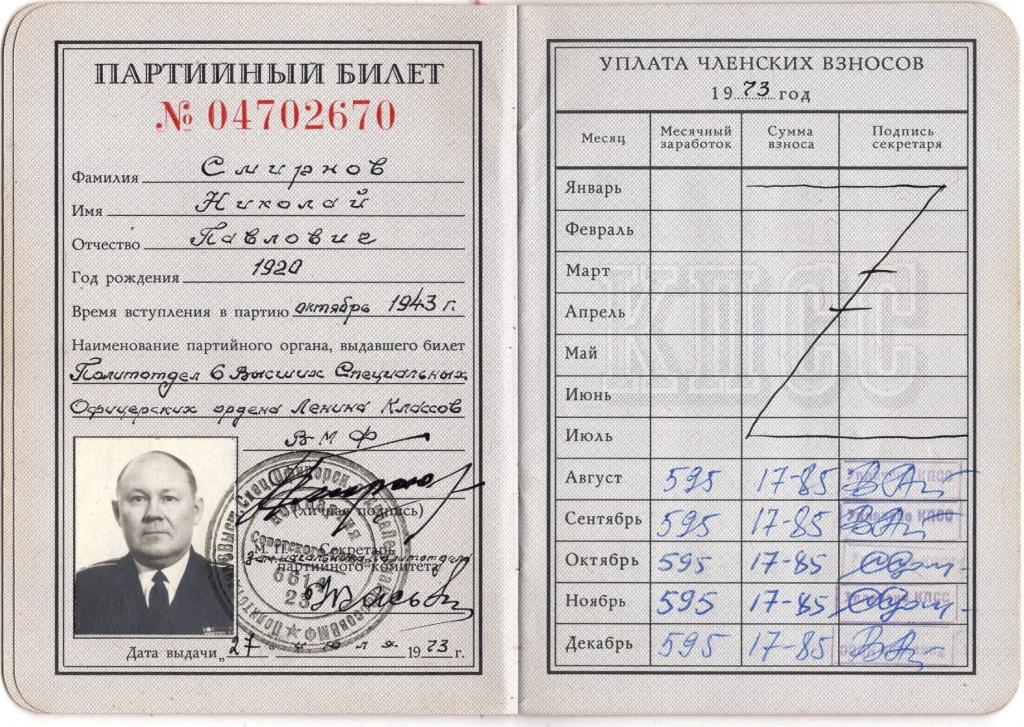 ПАРТИЙНЫЙ БИЛЕТ
№ 04702670
Фамилия Смирнов
Имя Николай
Отчество Павлович
Год рождения 1920
Время вступления в партию октябрь 1943 г.
Наименование партийного органа, выдавшего билет
Политотдел 6 Высших Специальных
Офицерских ордена Ленина Классов
ВМФ
(личная подпись)
М. П. Секретарь
партийного комитета
Дата выдачи „27“ июля 1973 г.
УПЛАТА ЧЛЕНСКИХ ВЗНОСОВ
1973 год
Месяц Месячный заработок Сумма взноса Подпись секретаря
Январь
Февраль
Март
Апрель
Май
Июнь
Июль
Август 595 17-85
Сентябрь 595 17-85
Октябрь 595 17-85
Ноябрь 595 17-85
Декабрь 595 17-85
КПСС